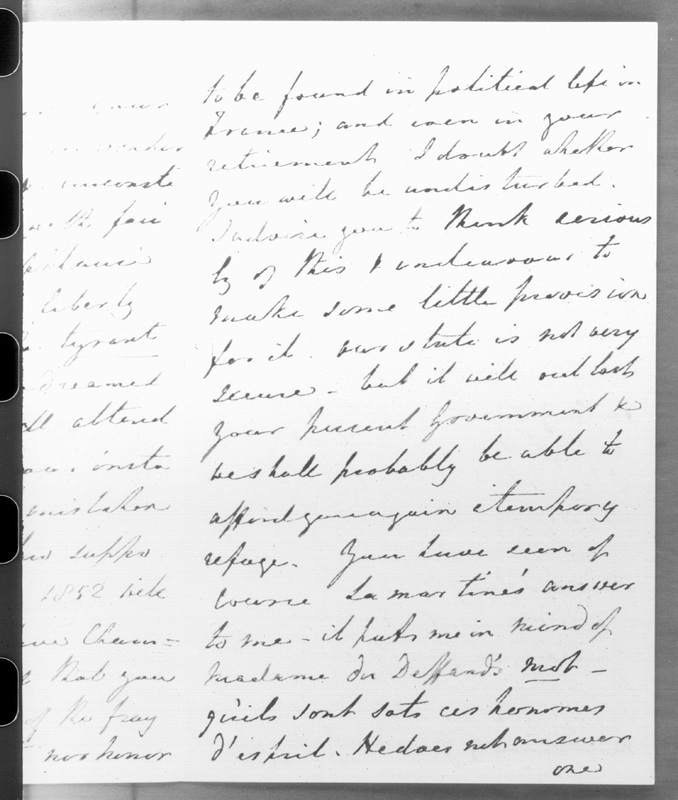 your
inconste
fair
liberty
tyrant
dreamed
attend
insta
mistaken
suppo
1852 will
Cham=
that you
of the fray
nor honor
to be found in political life in
France; and even in your
retirement I doubt whether
you will be undisturbed.
I advise you to think serious
ly of this & endeavour to
make some little provision
for it. our state is not very
secure - but it will out last
your present Government &
we shall probably be able to
afford you again a tempory
refuge. You have seen of
course Lamartine's answer
to me - it puts me in mind of
Madame du Deffand's mot -
qu'ils sont sots ces hommes
d'esprit. He does not answer
one